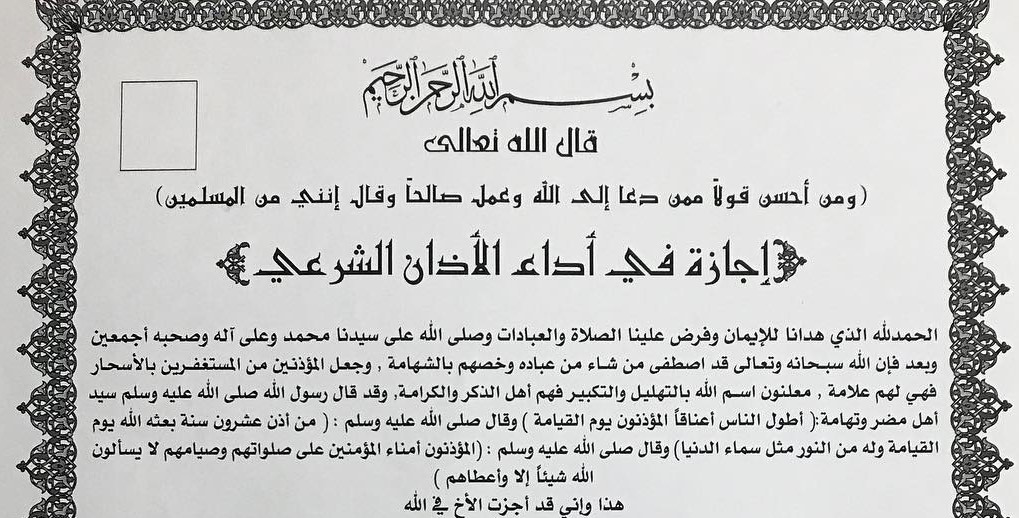 بسم الله الرحمن الرحيم
قال الله تعالى
(ومن أحسن قولاً ممن دعا إلى الله وعمل صالحاً وقال إنني من المسلمين)
إجازة في أداء الأذان الشرعي
الحمدلله الذي هدانا للإيمان وفرض علينا الصلاة والعبادات وصلى الله على سيدنا محمد وعلى آله وصحبه أجمعين
وبعد فإن الله سبحانه وتعالى قد اصطفى من شاء من عباده وخصهم بالشهامة , وجعل المؤذنين من المستغفرين بالأسحار
فهي لهم علامة , معلنون اسم الله بالتهليل والتكبير فهم أهل الذكر والكرامة, وقد قال رسول الله صلى الله عليه وسلم سيد
أهل مضر وتهامة:( أطول الناس أعناقاً المؤذنون يوم القيامة ) وقال صلى الله عليه وسلم : ( من أذن عشرون سنة بعثه الله يوم
القيامة وله من النور مثل سماء الدنيا) وقال صلى الله عليه وسلم : (المؤذنون أمناء المؤمنين على صلواتهم وصيامهم لا يسألون
الله شيئاً إلا وأعطاهم )
هذا وإني قد أجزت الأخ في الله